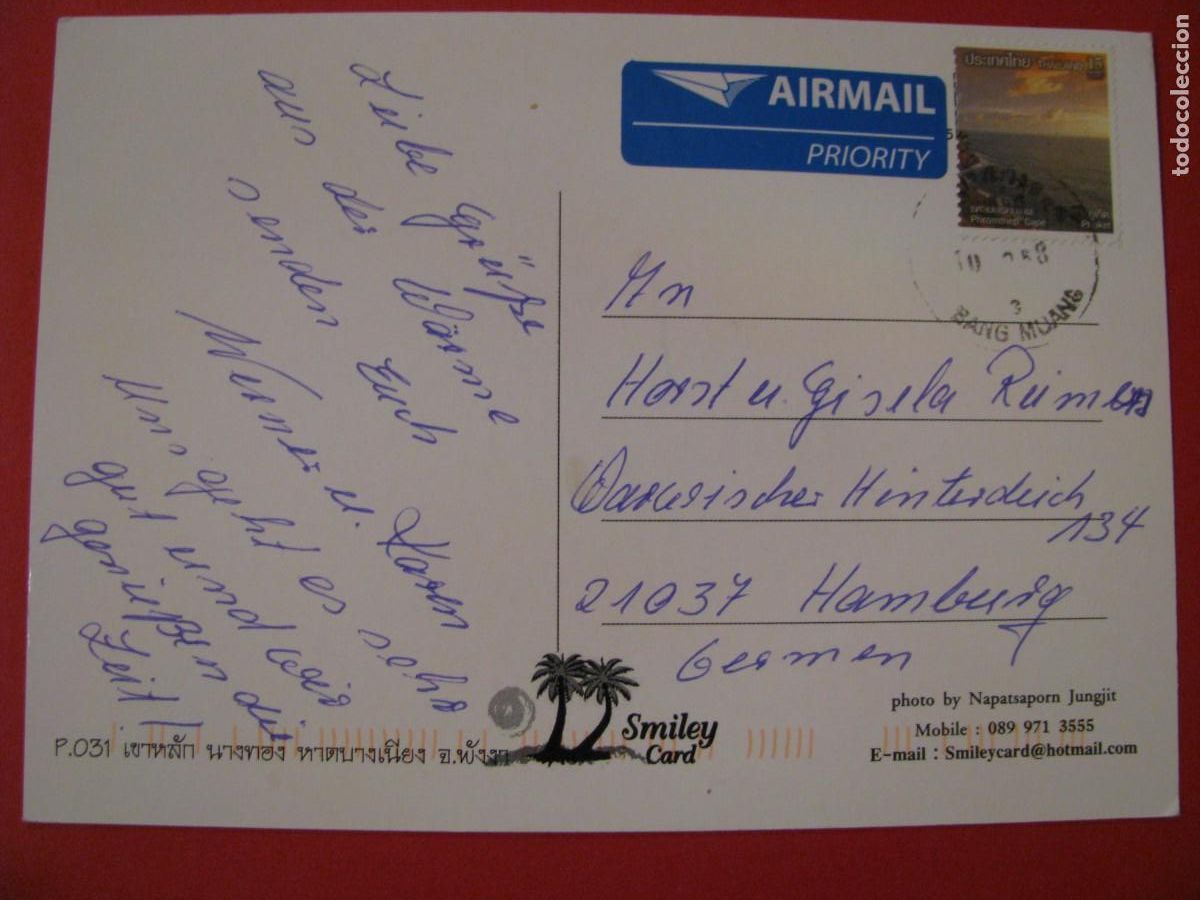 Liebe Grüße
aus der Wärme
senden Euch
Werner u. Karen
Uns geht es sehr
gut und wir
genießen die
Zeit!
AIRMAIL
PRIORITY
ประเทศไทย THAILAND 15
Phromthep Cape
ภูเก็ต
Phuket
BANG MUANG
3
An
Horst u. Gisela
Hinterdeich
134
21037 Hamburg
Germen
photo by Napatsaporn Jungjit
Mobile : 089 971 3555
E-mail : Smileycard@hotmail.com
Smiley
Card
P.031 เขาหลัก นางทอง หาดบางเนียง จ.พังงา
todocoleccion